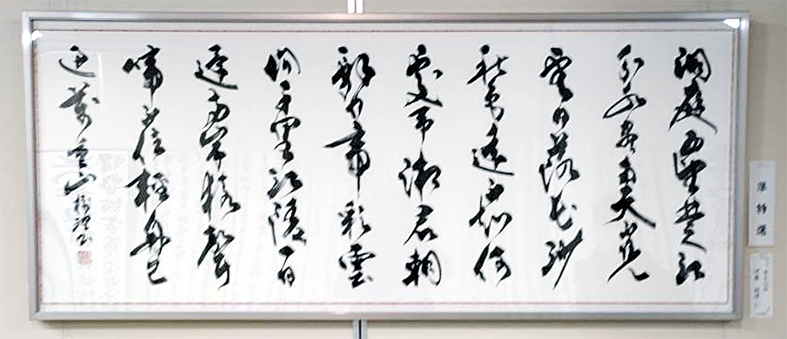 洞庭西望楚江
分水盡南天不見
雲日落長沙
秋色遠不知何
處弔湘君朝
辭白帝彩雲
間千里江陵一日
還兩岸猿聲
啼不住輕舟已
過萬重山
準特選